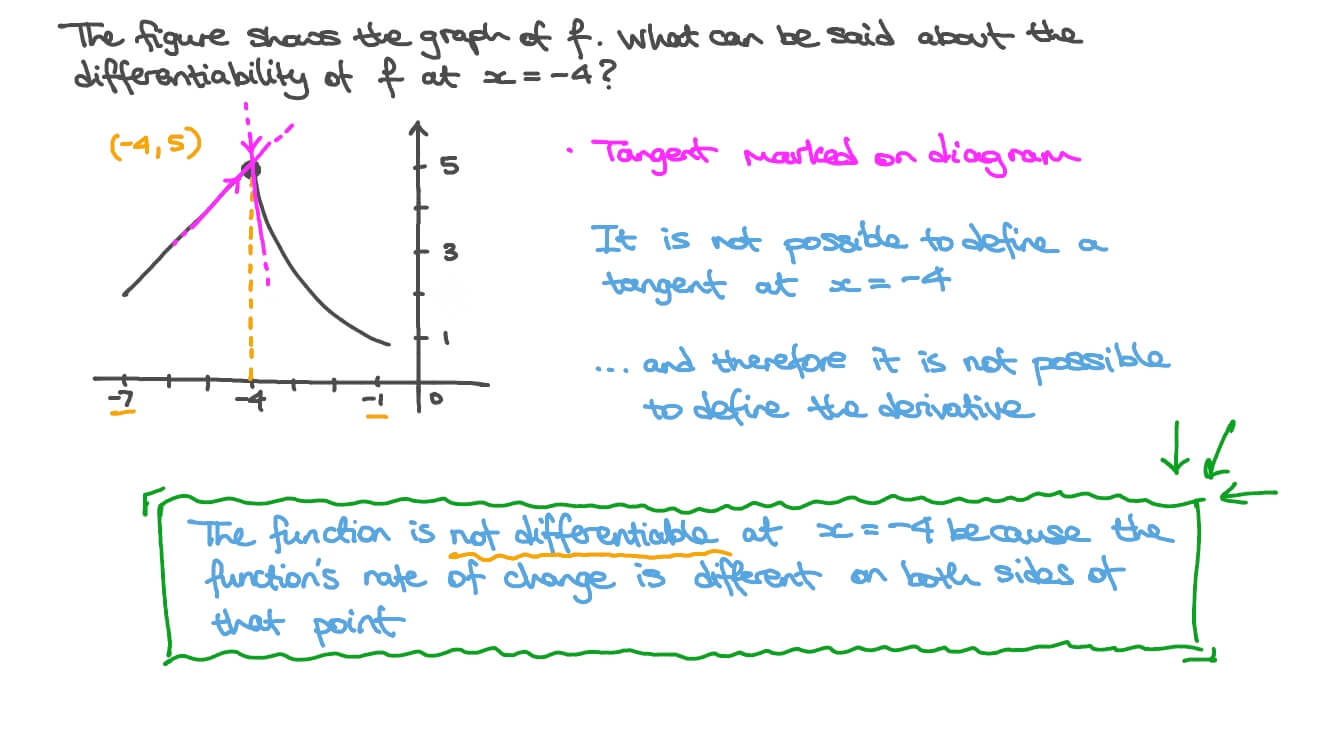 The figure shows the graph of f. What can be said about the
differentiability of f at x = -4?
(-4, 5)
5
3
1
-7
-4
-1
0
· Tangent marked on diagram
It is not possible to define a
tangent at x = -4
... and therefore it is not possible
to define the derivative
The function is not differentiable at x = -4 because the
function's rate of change is different on both sides of
that point